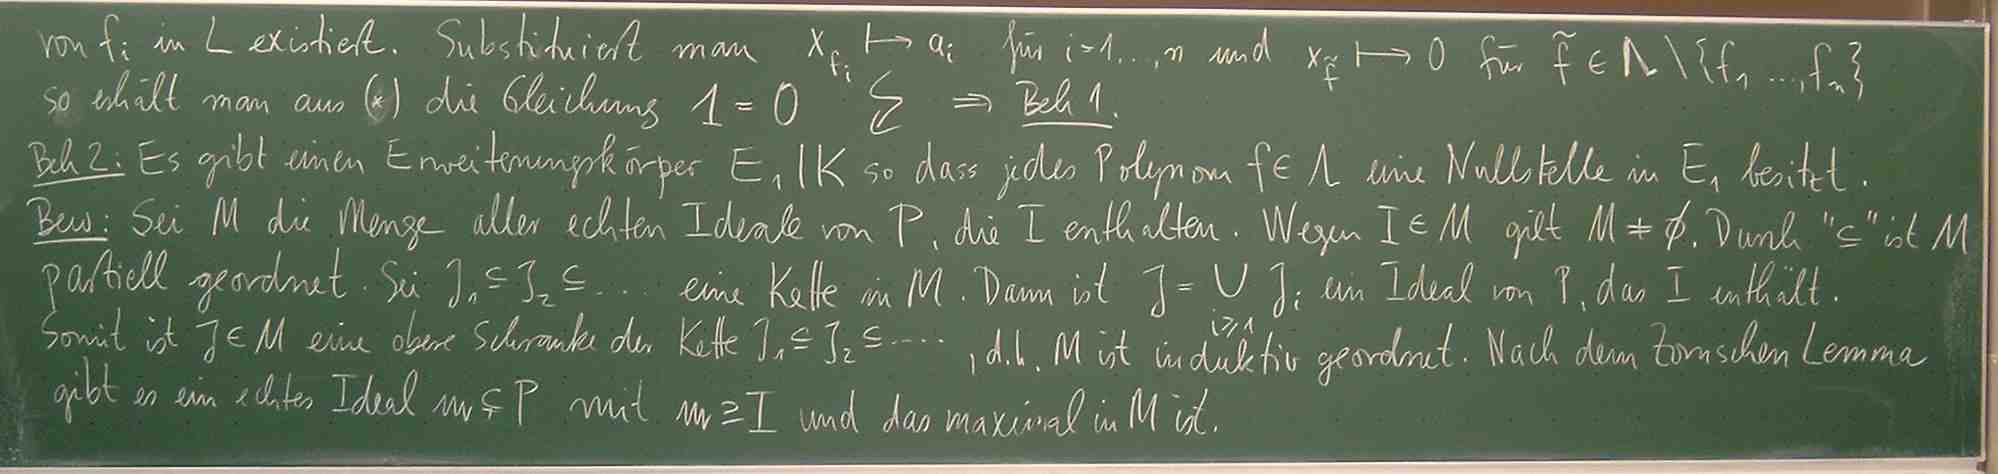 von f_i in L existiert. Substituiert man x_{f_i} ↦ a_i für i=1,...,n und x_{f̃} ↦ 0 für f̃ ∈ Λ\{f_1 ...,f_n}
so erhält man aus (*) die Gleichung 1 = 0 ↯ ⇒ Beh 1.
Beh 2: Es gibt einen Erweiterungskörper E_1|K so dass jedes Polynom f∈Λ eine Nullstelle in E_1 besitzt.
Bew: Sei M die Menge aller echten Ideale von P, die I enthalten. Wegen I∈M gilt M ≠ ∅. Durch "⊆" ist M
partiell geordnet. Sei J_1 ⊆ J_2 ⊆ .... eine Kette in M. Dann ist J = ∪_{i≥1} J_i ein Ideal von P, das I enthält.
Somit ist J∈M eine obere Schranke der Kette J_1 ⊆ J_2 ⊆ ....., d.h. M ist induktiv geordnet. Nach dem Zornschen Lemma
gibt es ein echtes Ideal m ⊊ P mit m ⊇ I und das maximal in M ist.